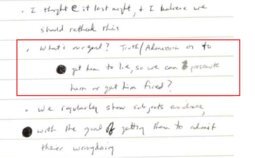 • I thought @ it last night, & I believe we
should rethink this
• What is our goal? Truth/Admission or to
get him to lie, so we can prosecute
him or get him fired?
• We regularly show subjects evidence,
with the goal of getting them to admit
their wrongdoing